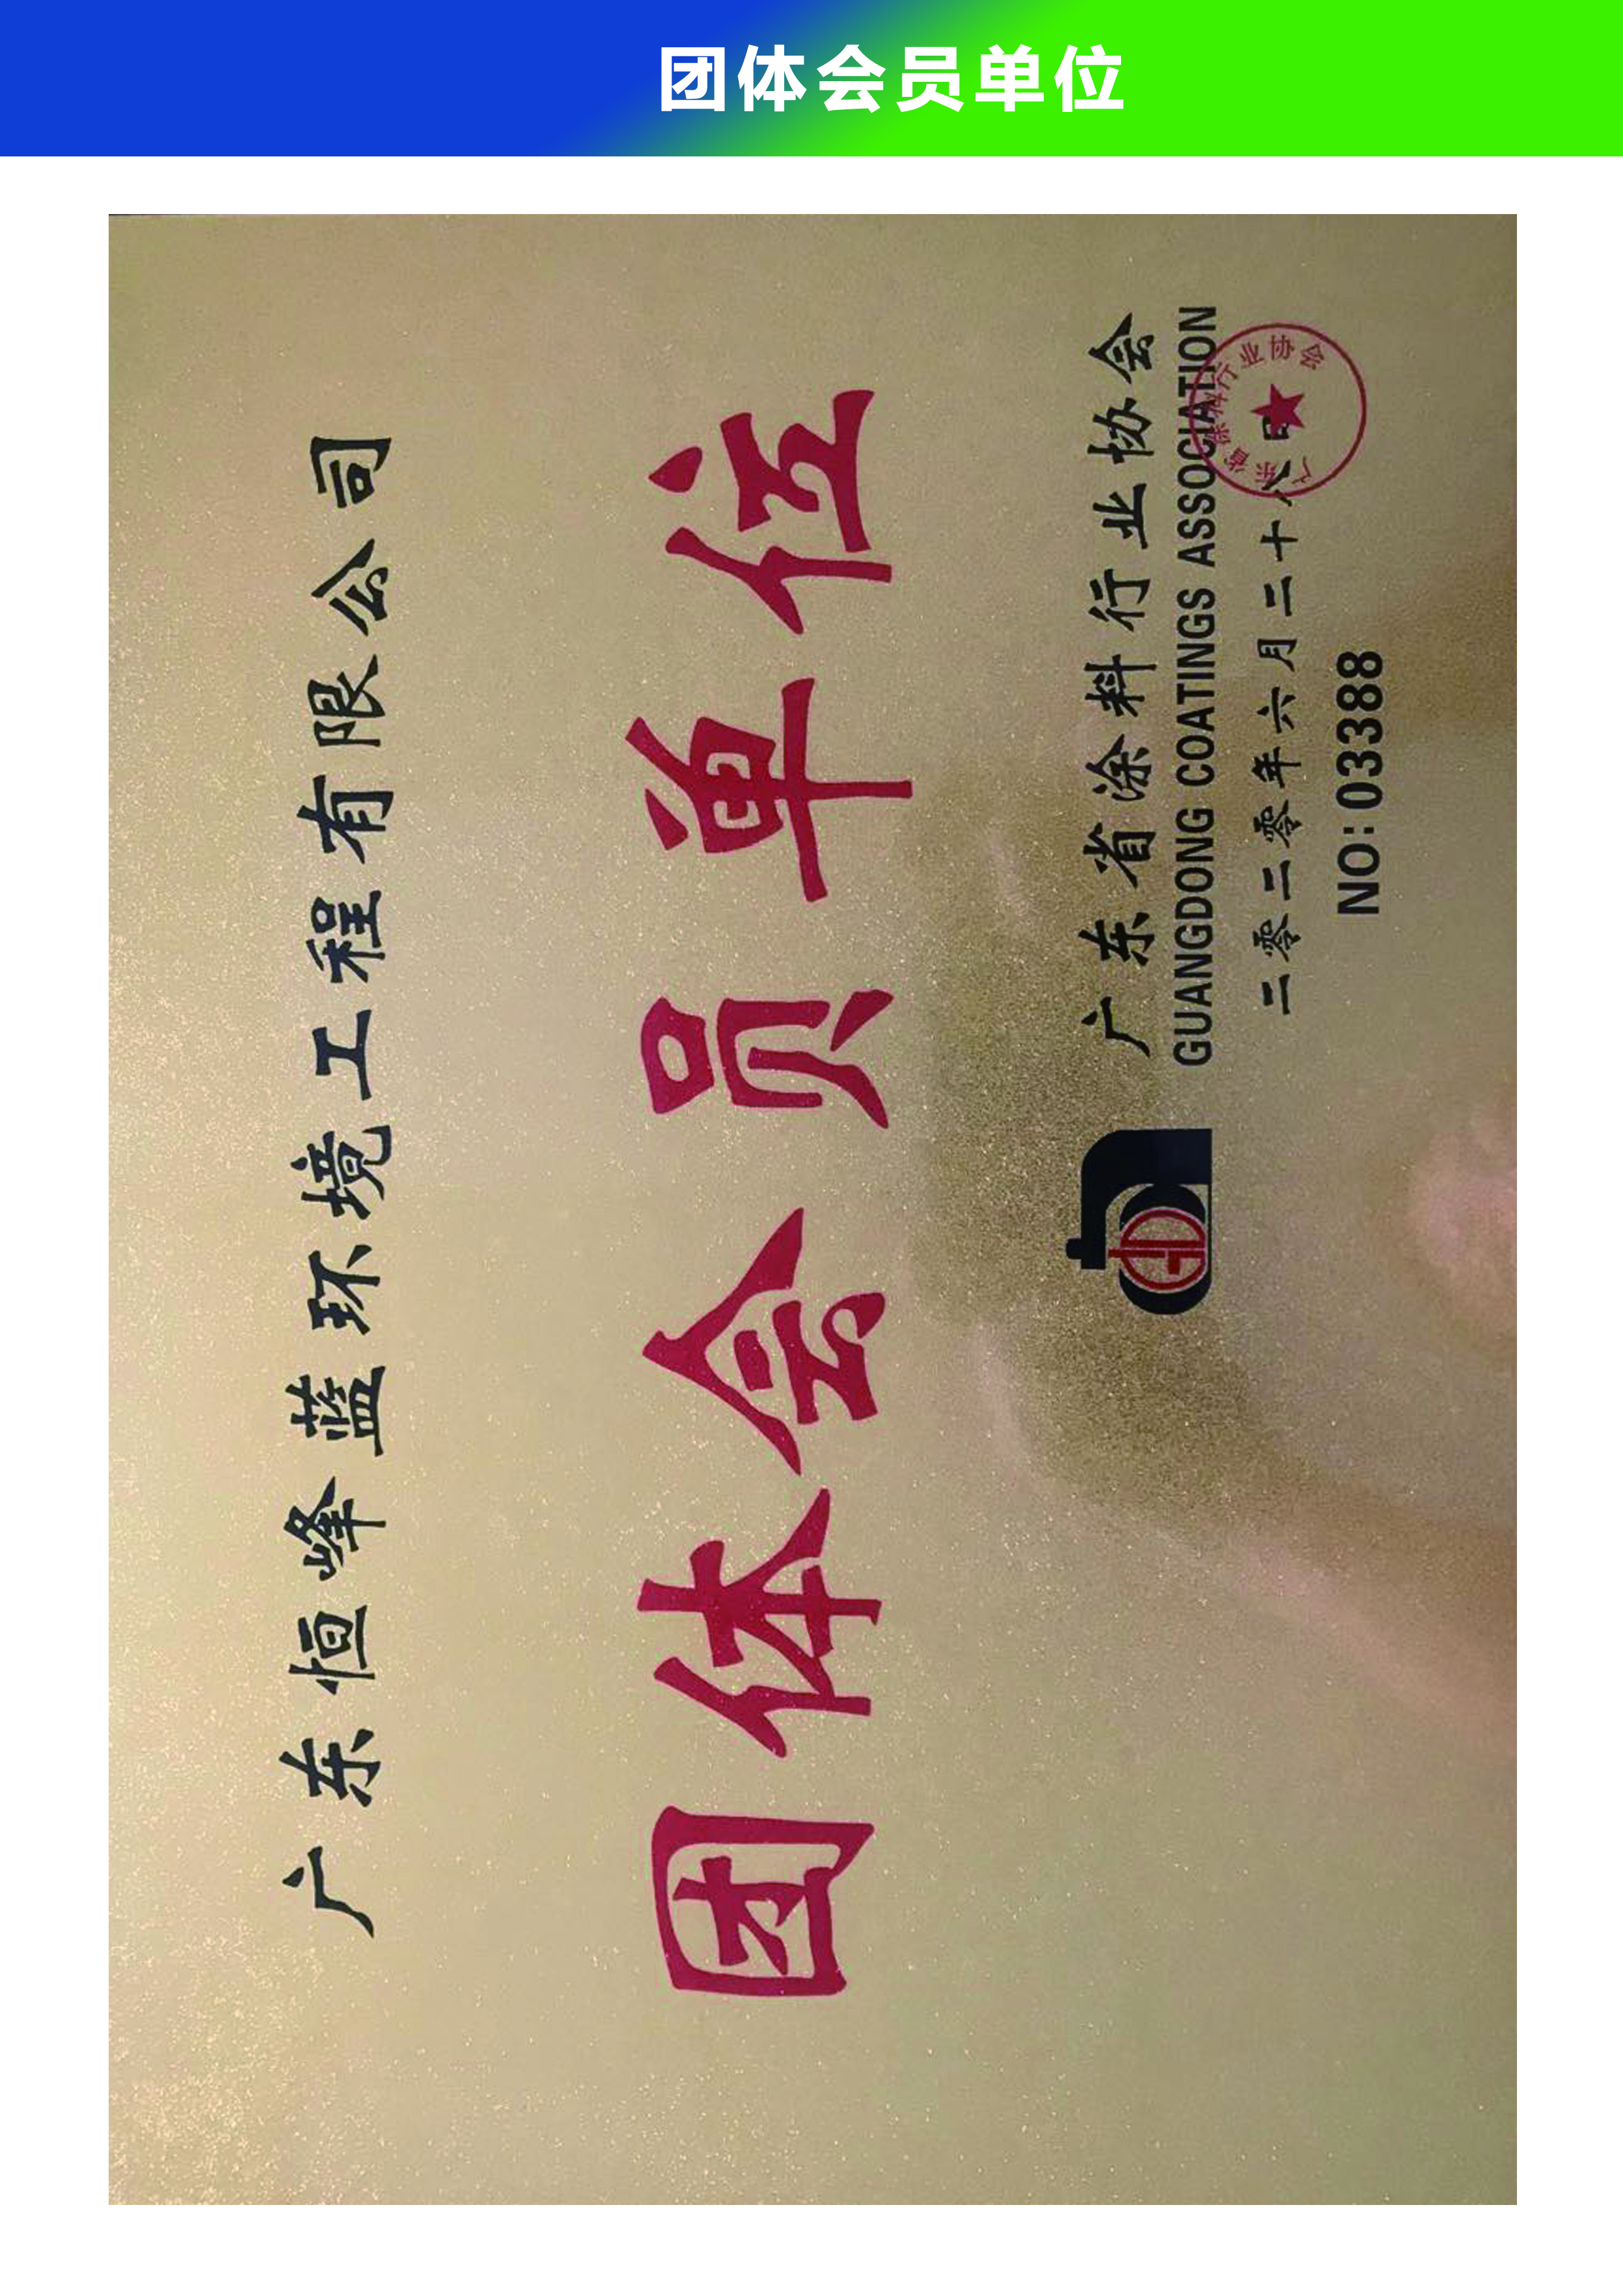 团体会员单位
广东恒峰蓝环境工程有限公司
团体会员单位
广东省涂料行业协会
GUANGDONG COATINGS ASSOCIATION
二零二零年六月二十八日
NO:03388
广东省涂料行业协会